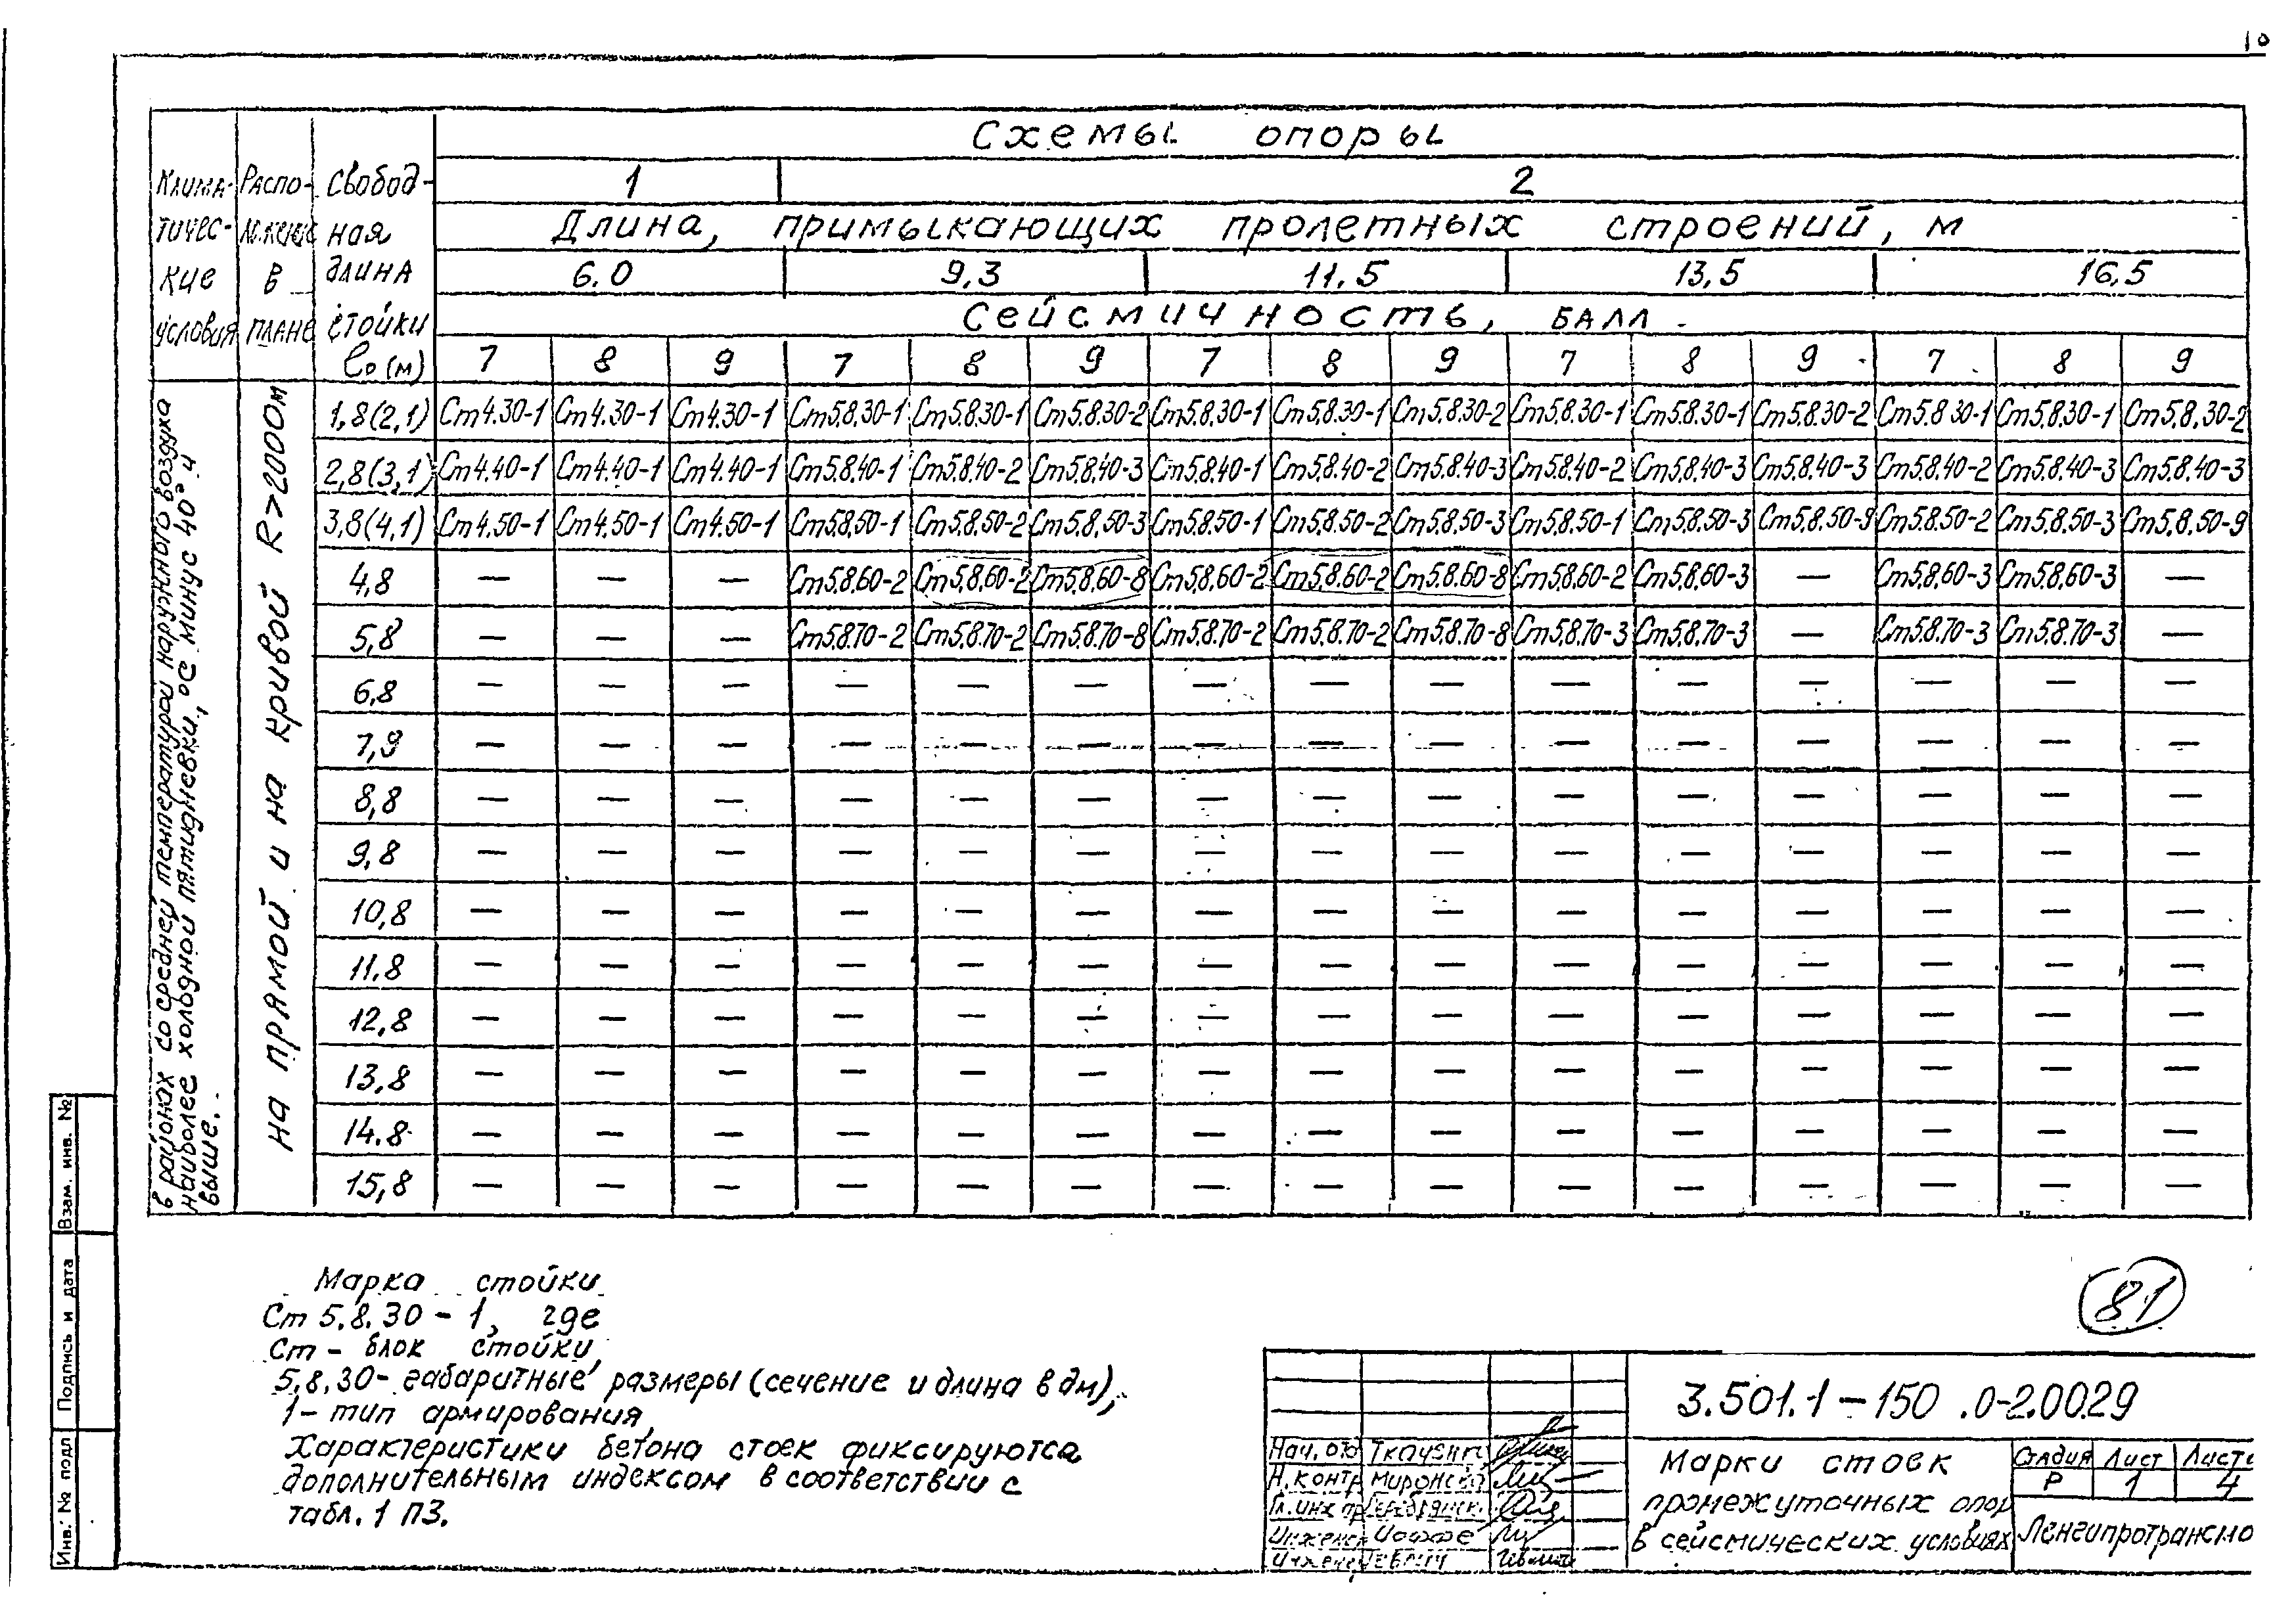 10
Схемы опоры
Клима- Распо- Свобод- 1 2
тичес- ная Длина, примыкающих пролетных строений, м
кие в длина 6.0 9,3 11,5 13,5 16,5
условия плане стойки Сейсмичность, балл
lо (м) 7 8 9 7 8 9 7 8 9 7 8 9 7 8 9
в районах со средней температурой наружного воздуха
наиболее холодной пятидневки, °С минус 40° и
выше.
на прямой и на кривой R>2000м
1,8(2,1) Ст4.30-1 Ст4.30-1 Ст4.30-1 Ст5.8.30-1 Ст5.8.30-1 Ст5.8.30-2 Ст5.8.30-1 Ст5.8.30-1 Ст5.8.30-2 Ст5.8.30-1 Ст5.8.30-1 Ст5.8.30-2 Ст5.8.30-1 Ст5.8.30-1 Ст5.8.30-2
2,8(3,1) Ст4.40-1 Ст4.40-1 Ст4.40-1 Ст5.8.40-1 Ст5.8.40-2 Ст5.8.40-3 Ст5.8.40-1 Ст5.8.40-2 Ст5.8.40-3 Ст5.8.40-2 Ст5.8.40-3 Ст5.8.40-3 Ст5.8.40-2 Ст5.8.40-3 Ст5.8.40-3
3,8(4,1) Ст4.50-1 Ст4.50-1 Ст4.50-1 Ст5.8.50-1 Ст5.8.50-2 Ст5.8.50-3 Ст5.8.50-1 Ст5.8.50-2 Ст5.8.50-3 Ст5.8.50-1 Ст5.8.50-3 Ст5.8.50-9 Ст5.8.50-2 Ст5.8.50-3 Ст5.8.50-9
4,8 — — — Ст5.8.60-2 Ст5.8.60-2 Ст5.8.60-8 Ст5.8.60-2 Ст5.8.60-2 Ст5.8.60-8 Ст5.8.60-2 Ст5.8.60-3 — Ст5.8.60-3 Ст5.8.60-3 —
5,8 — — — Ст5.8.70-2 Ст5.8.70-2 Ст5.8.70-8 Ст5.8.70-2 Ст5.8.70-2 Ст5.8.70-8 Ст5.8.70-3 Ст5.8.70-3 — Ст5.8.70-3 Ст5.8.70-3 —
6,8 — — — — — — — — — — — — — — —
7,9 — — — — — — — — — — — — — — —
8,8 — — — — — — — — — — — — — — —
9,8 — — — — — — — — — — — — — — —
10,8 — — — — — — — — — — — — — — —
11.8 — — — — — — — — — — — — — — —
12,8 — — — — — — — — — — — — — — —
13,8 — — — — — — — — — — — — — — —
14.8 — — — — — — — — — — — — — — —
15,8 — — — — — — — — — — — — — — —
Марка стойки
Ст 5.8.30-1, где
Ст - блок стойки,
5,8,30- габаритные размеры (сечение и длина в дм),
1- тип армирования,
Характеристики бетона стоек фиксируются
дополнительным индексом в соответствии с
табл. 1 ПЗ.
81
Взам. инв. №
Подпись и дата
Инв. № подл
3.501.1-150 .0-2.0029
Нач. отд
Н.контр
Гл. инж пр
Марки стоек
промежуточных опор
в сейсмических условиях
Стадия Лист
Р 1 4
Ленгипротрансмо